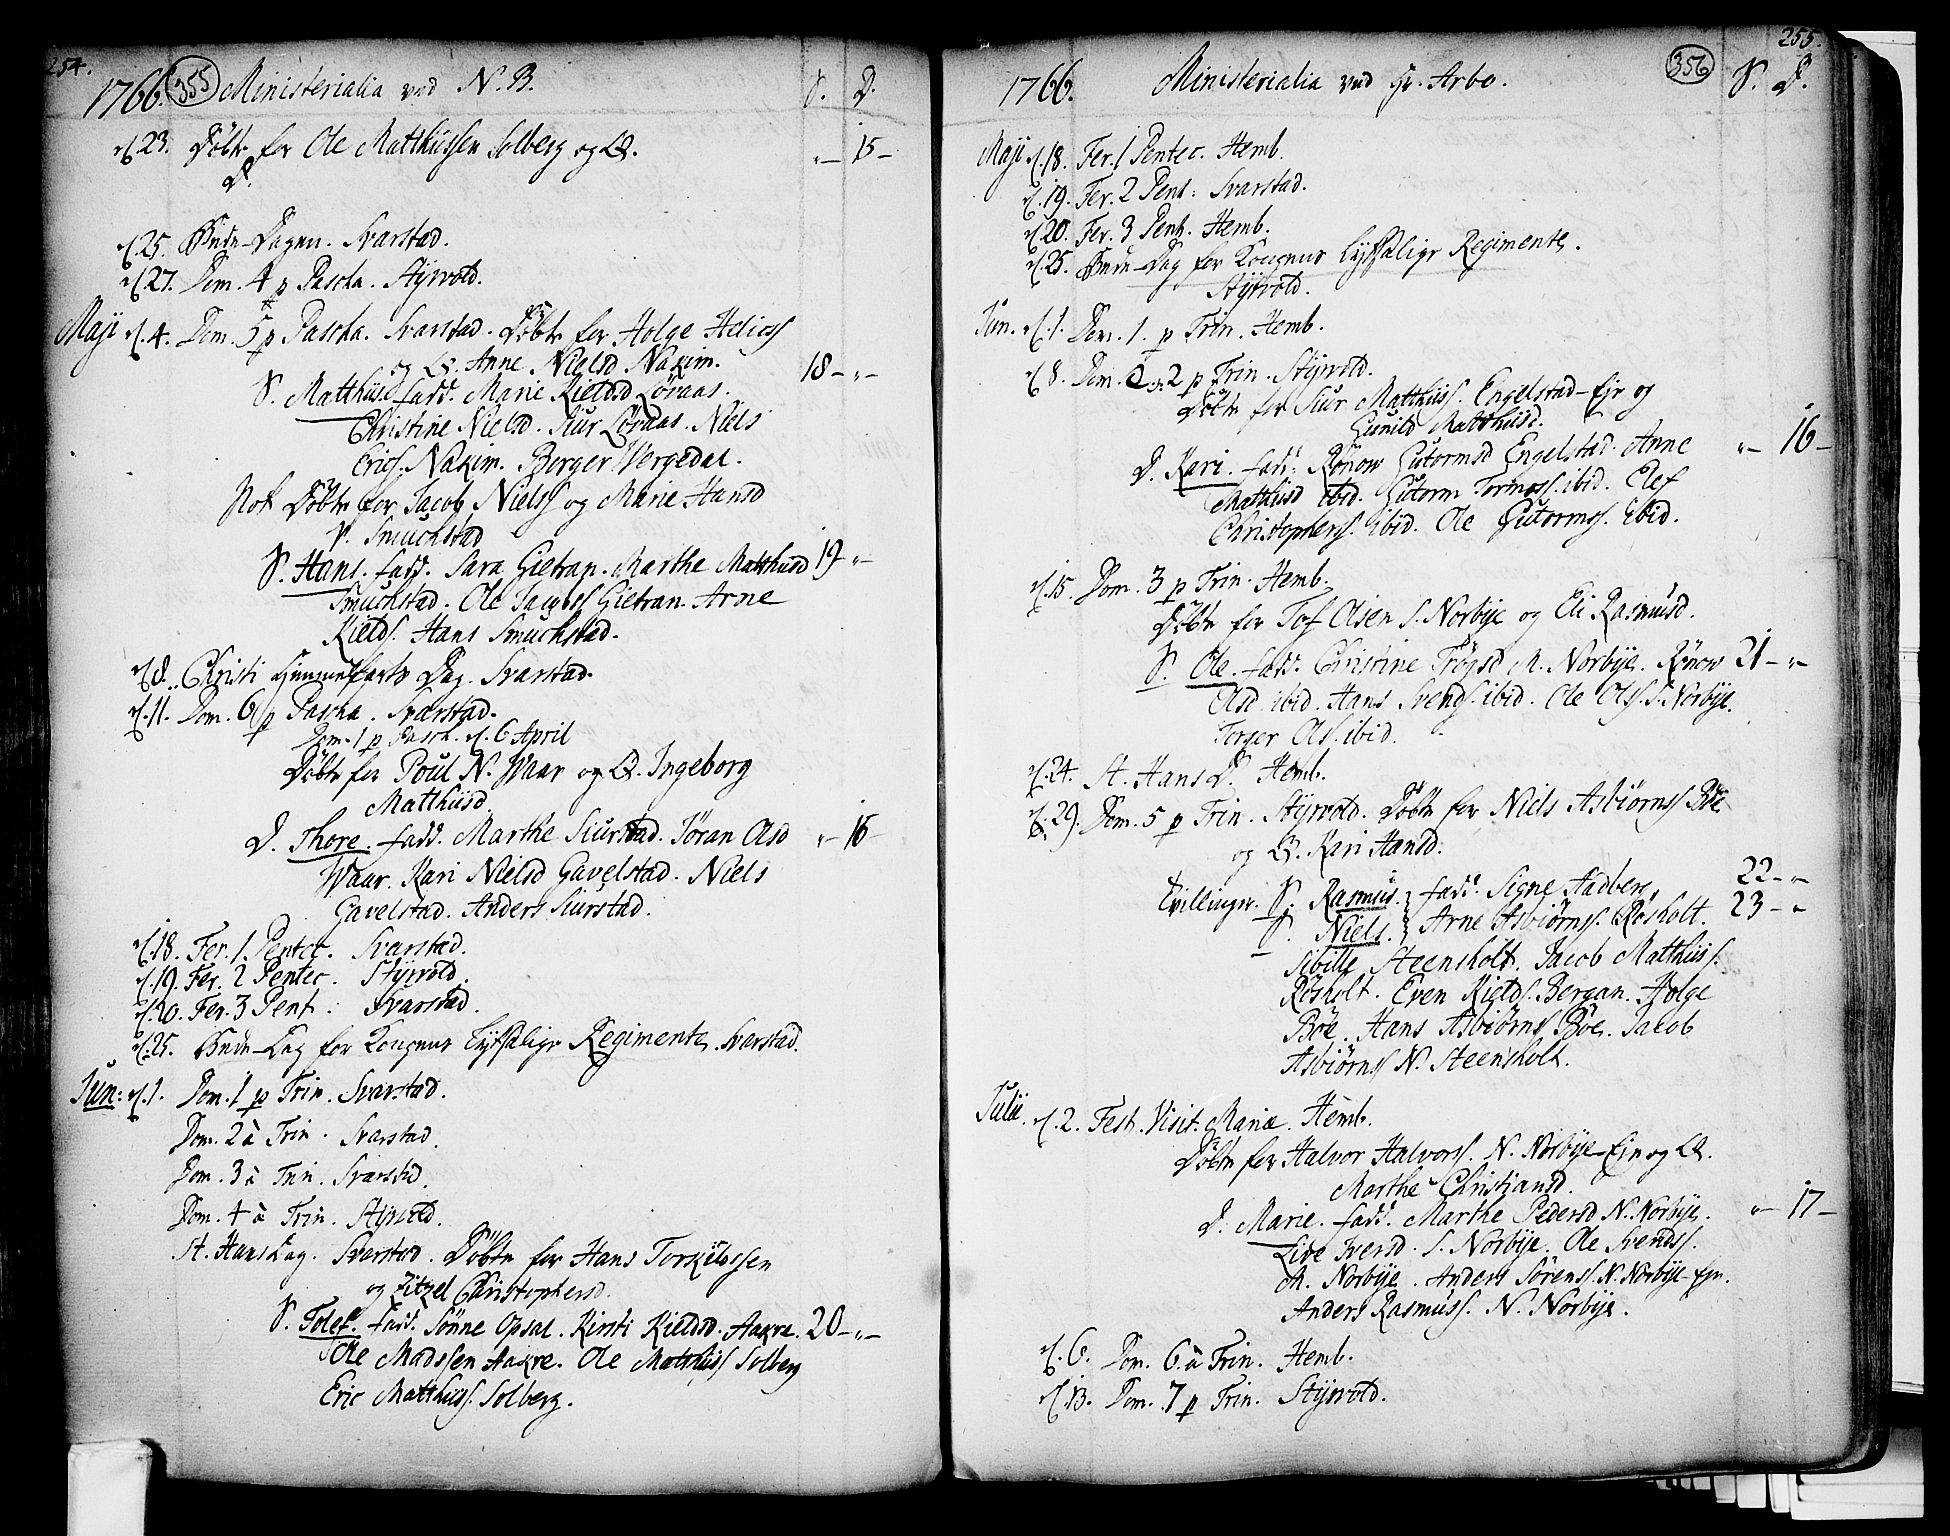 254.
1766. 355 Ministerialia ved N. B. S. D.
d. 23. Döbte for Ole Matthiissen Solberg og Q. „ — 15 —
D.
d. 25. Bede-Dagen. Svarstad.
d. 27. Dom. 4 p Pascha. Styrvold.
Maji d. 4. Dom. 5 p Pascha. Svarstad. Döbte for Holge Helioss
og Q. Anne Nielsd Nakim. 18 — „ —
S. Matthiis. fadd. Marie Kieldsd Löraas.
Christine Nielsd. Siur Löraas. Niels
Erics. Nakim. Borger Vergedal.
Not Döbte for Jacob Nielss og Marie Hansd
V. Smuchstad
S. Hans. fadd. Sara Gietran. Marthe Matthiisd 19 „ —
Smuchstad. Ole Jacobs Gietran. Arne
Kields. Hans Smuchstad.
d. 8. Christi Himmelfarts Dag. Svarstad.
d. 11. Dom. 6 p Pascha. Svarstad.
Dom. 1 p Pasch. d. 6 April
Döbte for Poul N. Waar og Q. Ingeborg
Matthiisd
D. Thore. fadd. Marthe Siurstad. Jöran Olsd „ — 15 —
Waar. Kari Nielsd Gavelstad. Niels
Gavelstad. Anders Siurstad.
d. 18. Fer. 1. Pentec. Svarstad.
d. 19. Fer. 2 Pentec. Styrvold.
d. 20. Fer. 3 Pent: Svarstad.
d. 25. Bede-Dag for Kongens lyksalige Regimente. Svarstad.
Jun: d. 1. Dom. 1 p Trin. Svarstad.
Dom. 2 à Trin. Svarstad.
Dom. 3 à Trin. Svarstad.
Dom. 4 à Trin. Styrvold.
St. Hans Dag. Svarstad. Döbte for Hans Torkildssen
og Zitzel Christophersd.
S. Tolef. fadd. Sönne Opsal. Kirsti Kieldsd. Aakre. 20 — „ —
Ole Madssen Aakre. Ole Matthiiss Solberg
Eric Matthiiss. Solberg.
255.
1766. Ministerialia ved Hr. Arbo. 356 S. D.
Maji d. 18. Fer. 1 Pentec. Hemb.
d. 19. Fer. 2 Pent: Svarstad.
d. 20. Fer. 3 Pent. Hemb.
d. 25. Bede-Dag for Kongens lyksalige Regimente.
Styrvold.
Jun. d. 1. Dom. 1. p Trin. Hemb.
d. 8. Dom. 2 p Trin. Styrvold.
Döbte for Siur Matthiiss. Engelstad-Eje og
Gunild Matthiisd.
D. Kari. fadd. Rönow Gutormsd Engelstad. Anne „ — 16 —
Matthiisd ibid. Gutorm Tormoss. ibid. Elef
Christopherss. ibid. Ole Gutormss. ibid.
d. 15. Dom. 3 p Trin. Hemb.
Döbte for Tof Olsen S. Norbye og Eli Rasmusd.
S. Ole. fadd. Christine Tröysd M. Norbye. Rönow 21 — „ —
Olsd ibid. Hans Svends. ibid. Ole Olss. S. Norbye.
Torger Ols. ibid.
d. 24. St. Hans D. Hemb.
d. 29. Dom. 5 p Trin. Styrvold. Döbte for Niels Asbiörnss Böe
og Q. Kari Hansd.
Tvillinger. S. Rasmus. fadd. Signe Hadberg 22 — „ —
S. Niels. Arne Asbiörnss. Rösholt. 23 — „
Sibille Steensholt. Jacob Matthiiss.
Rösholt. Even Kields. Bergan. Holge
Böe. Hans Asbiörnss Böe. Jacob
Asbiörnss N. Steensholt.
Julii d. 2. Fest. Visit. Mariæ. Hemb.
Döbte for Halvor Halvorss. N. Norbye-Eje og Q.
Marthe Christiansd.
D. Marie. fadd. Marthe Pedersd N. Norbye. „ — 17 —
Live Iversd. S. Norbye. Ole Svendss.
M. Norbye. Anders Sörenss. N. Norbye-Eje.
Anders Rasmuss. N. Norbye.
d. 6. Dom. 6. à Trin. Hemb.
d. 13. Dom. 7 p Trin. Styrvold.